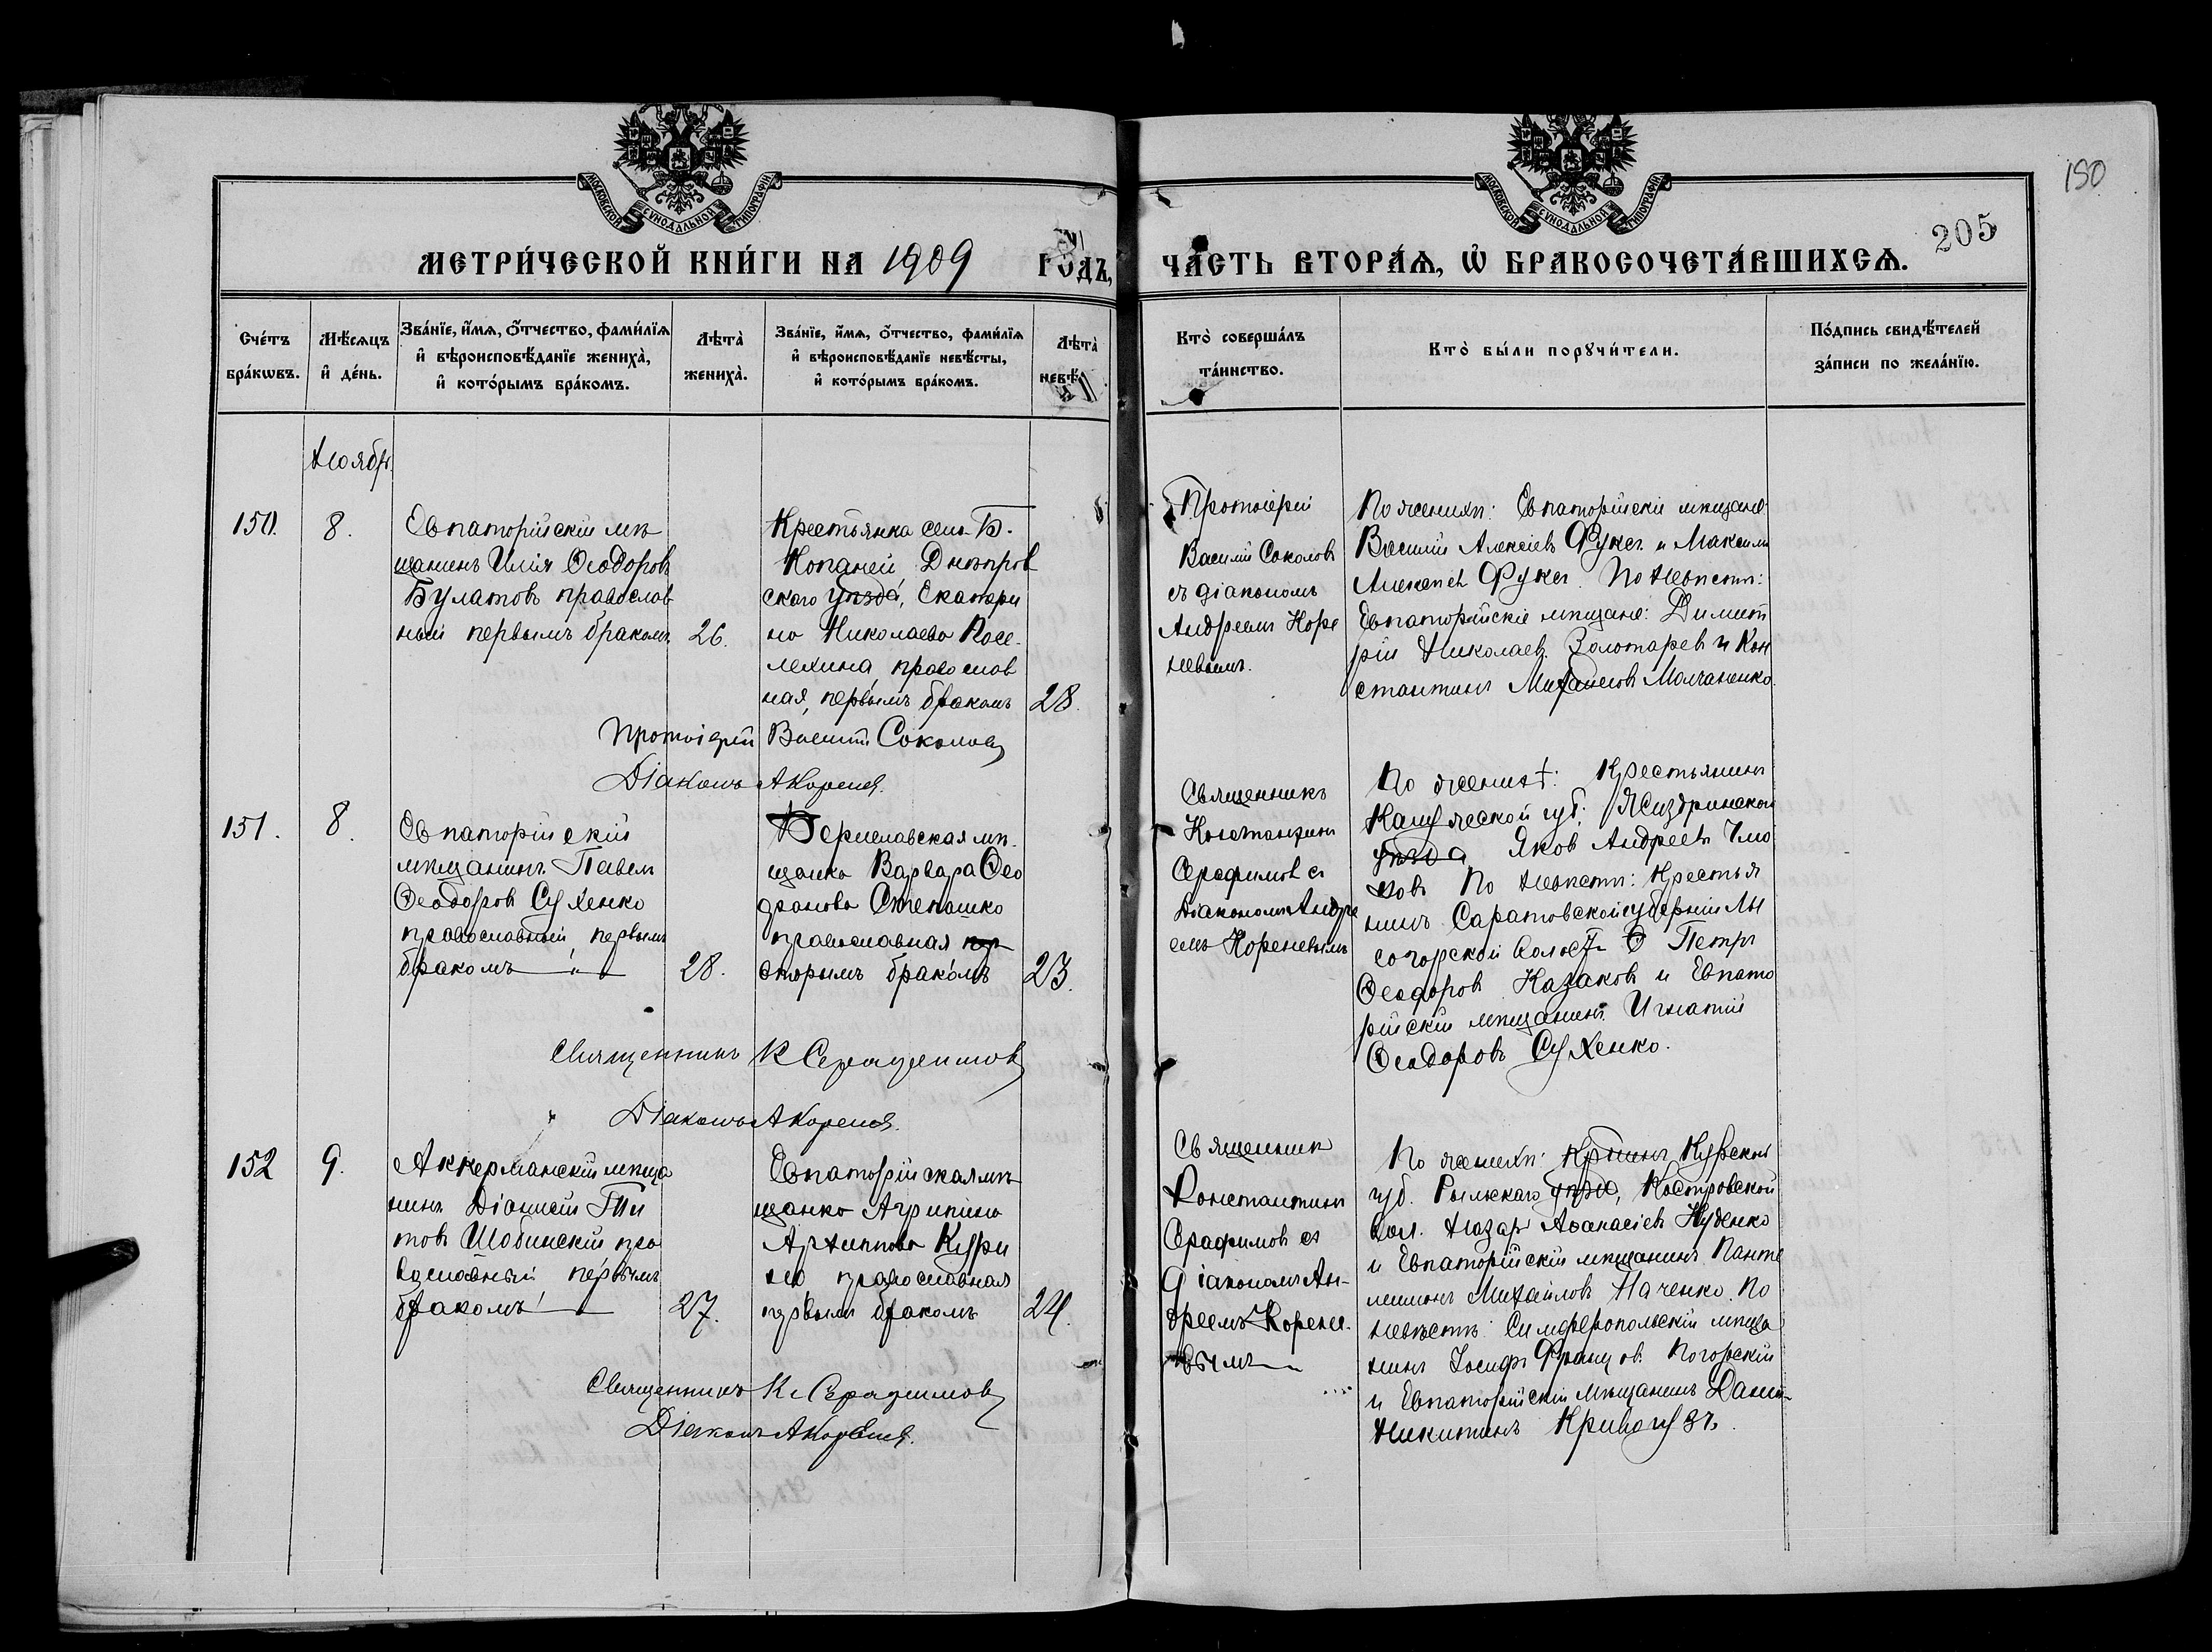 150
205
МОСКОВСКОЙ СУНОДАЛЬНОЙ ТИПОГРАФІИ
МОСКОВСКОЙ СУНОДАЛЬНОЙ ТИПОГРАФІИ
МЕТРИ́ЧЕСКОЙ КНИ́ГИ НА 1909 ГОДЪ,
ЧА́СТЬ ВТОРА́Ѧ, Ѡ҆ БРАКОСОЧЕТА́ВШИХСѦ.
Сче́тъ
бра́кѡвъ.
Мѣ́сѧцъ
и҆ де́нь.
Зва́нїе, и҆́мѧ, ѻ҆́тчество, фами́лїѧ
и҆ вѣроисповѣ́данїе жениха̀,
и҆ кото́рымъ бра́комъ.
Лѣ́та
жениха̀.
Зва́нїе, и҆́мѧ, ѻ҆́тчество, фами́лїѧ
и҆ вѣроисповѣ́данїе невѣ́сты,
и҆ кото́рымъ бра́комъ.
Лѣ́та
невѣ́
Кто̀ соверша́лъ
та́инство.
Кто̀ бы́ли порꙋчи́тели.
По́дпись свидѣ́телей
за́писи по жела́нїю.
Ноябр.
150.
8.
Евпаторійскій мѣ
щанинъ Илія Ѳеодоровъ
Булатовъ православ
ный первымъ бракомъ
26.
Крестьянка села Б.
Копаней Днѣпров
скаго уѣзда, Екатери
на Николаева Косе
лехина, православ
ная, первымъ бракомъ
28.
Протоіерей
Василій Соколовъ
съ діакономъ
Андреемъ Коре
невымъ.
По женихѣ: Евпаторійскіе мѣщане
Василій Алексіевъ Фуксъ и Максимъ
Алексіевъ Фуксъ. По невѣстѣ:
Евпаторійскіе мѣщане: Димит
рій Николаевъ Золотаревъ и Кон
стантинъ Михаиловъ Молчаненко.
Протоіерей Василій Соколовъ
Діаконъ А Кореневъ.
151.
8.
Евпаторійскій
мѣщанинъ Павелъ
Ѳеодоровъ Сухенко
православный, первымъ
бракомъ
28.
Бериславская мѣ
щанка Варвара Ѳео
фанова Степашко
православная
вторымъ бракомъ
23.
Священникъ
Константинъ
Серафимовъ съ
Діакономъ Андре
емъ Кореневымъ
По женихѣ: Крестьянинъ
Калужской губ. Жиздринскаго
уѣзда, Яковъ Андреевъ
По невѣстѣ: Крестья
нинъ Саратовской губерніи Лы
согорской волости Петръ
Ѳеодоровъ Казаковъ и Евпато
рійскій мѣщанинъ Игнатій
Ѳеодоровъ Сухенко.
Священникъ К Серафимовъ
Діаконъ А Кореневъ.
152
9.
Аккерманскій мѣща
нинъ Діонисій Ти
товъ Шобинскій пра
вославный первымъ
бракомъ
27.
Евпаторійская мѣ
щанка Агрипина
Архипова Кури
ло православная
первымъ бракомъ
24.
Священникъ
Константинъ
Серафимовъ съ
діакономъ Ан
дреемъ Корене
вымъ
По женихѣ: Кр-нинъ Курской
губ. Рыльскаго уѣзда, Костровской
вол. Назаръ Аѳанасіевъ Куденко
и Евпаторійскій мѣщанинъ Панте
леимонъ Михайловъ Наченко. По
невѣстѣ: Симферопольскій мѣща
нинъ Іосифъ Францовъ Погорскій
и Евпаторійскій мѣщанинъ Данил
Никитинъ Кривогузъ.
Священникъ К. Серафимовъ
Діаконъ А Кореневъ.